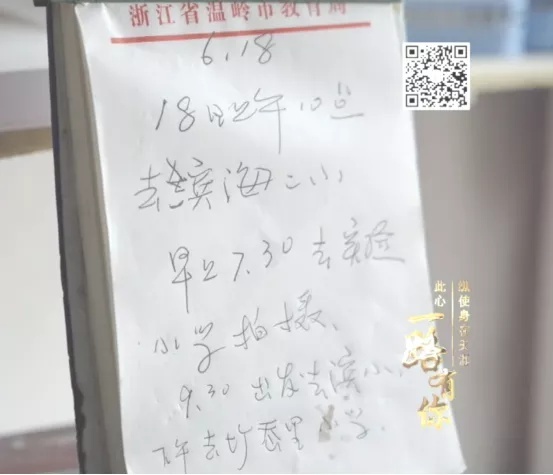 浙江省温岭市教育局
6.18
18日上午10点
去滨海二小
早上7.30去实验
小学拍摄、
9.30出发去滨小、
下午去岙里小学.
此心
纵使身在天涯
一路有你